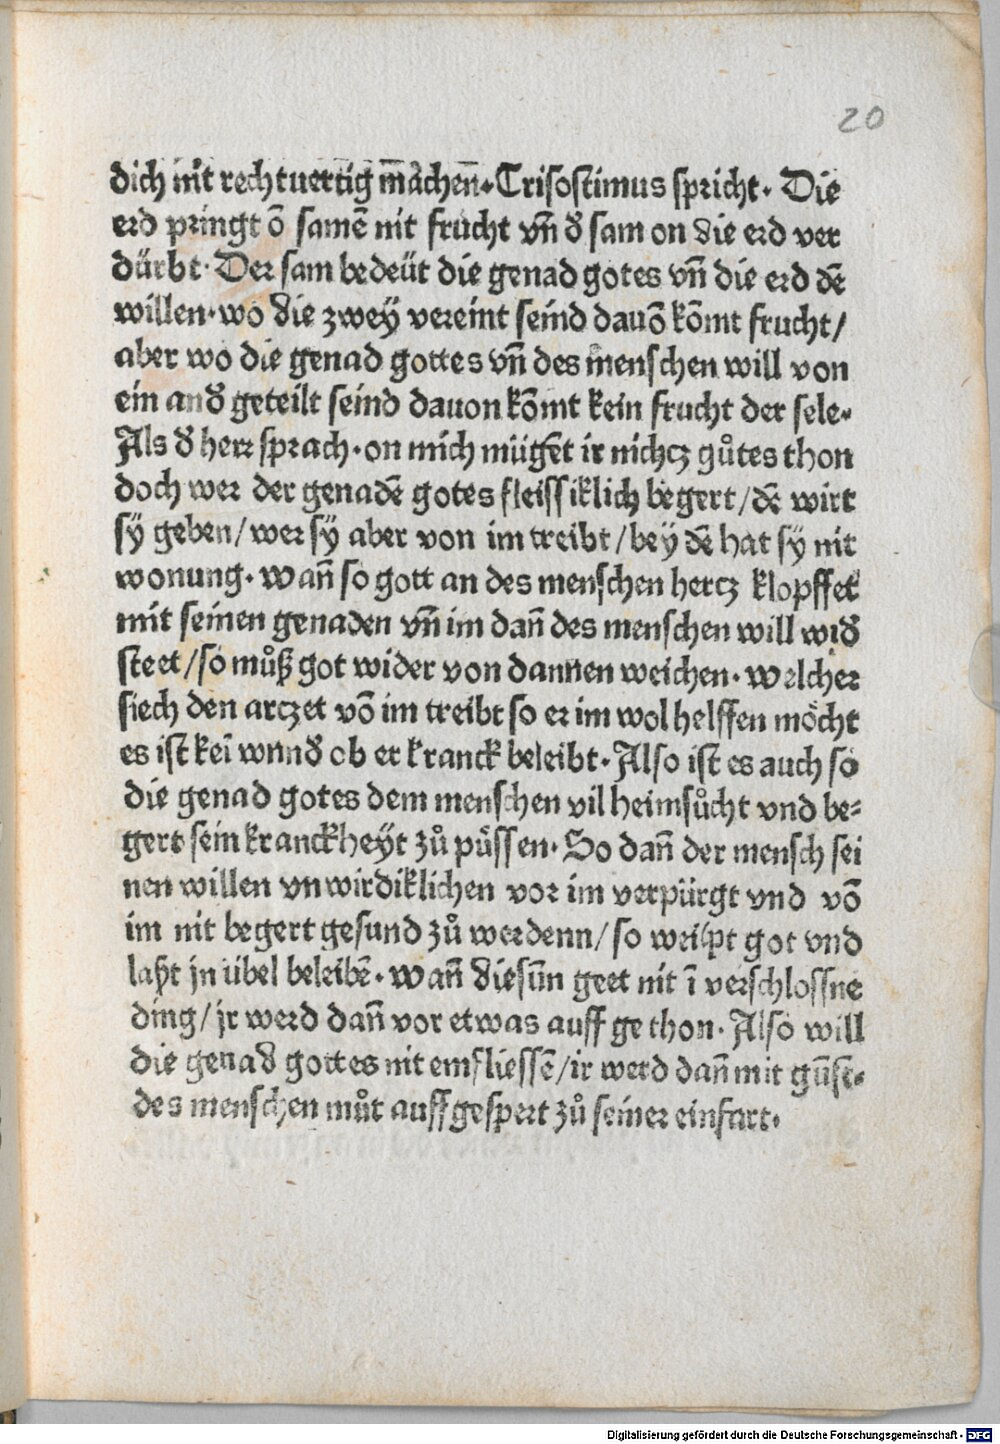 20
dich nit rechtuertig machenn. Crisostimus spricht. Die
erd pringt õ samẽ nit frucht vñ ð sam on die erd ver
dürbt. Der sam bedeüt die genad gotes vñ die erd dẽ
willen. wo die zwey vereint seind dauõ kõmt frucht/
aber wo die genad gottes vñ des menschen will von
ein and geteilt seind dauon kõmt kein frucht der sele.
Als ð herr sprach. on mich müget ir nichcz gůtes thon
doch wer der genadẽ gotes fleissiklich begert/dẽ wirt
sy geben/wer sy aber von im treibt/bey dẽ hat sy nit
wonung. wañ so gott an des menschen hercz klopffet
mit seinen genaden vñ im dañ des menschen will wið
steet/so můß got wider von dannen weichen. welcher
siech den arczet võ im treibt so er im wol helffen möcht
es ist keĩ wunð ob er kranck beleibt. Also ist es auch so
die genad gotes dem menschen vil heimsůcht vnd be-
gert sein kranckheyt zů püssen. So dañ der mensch sei
nen willen vnwirdiklichen vor im verpürgt vnd võ
im nit begert gesund zů werdenn/so weipt got vnd
laßt jn übel beleibẽ. wañ die sũn geet nit ĩ verschlossne
ding/jr werd dañ vor etwas auff gethon. Also will
die genad gottes nit emfliessẽ/ir werd dañ mit gũst.
des menschen můt auffgespert zů seiner einfart.
Digitalisierung gefördert durch die Deutsche Forschungsgemeinschaft - DFG